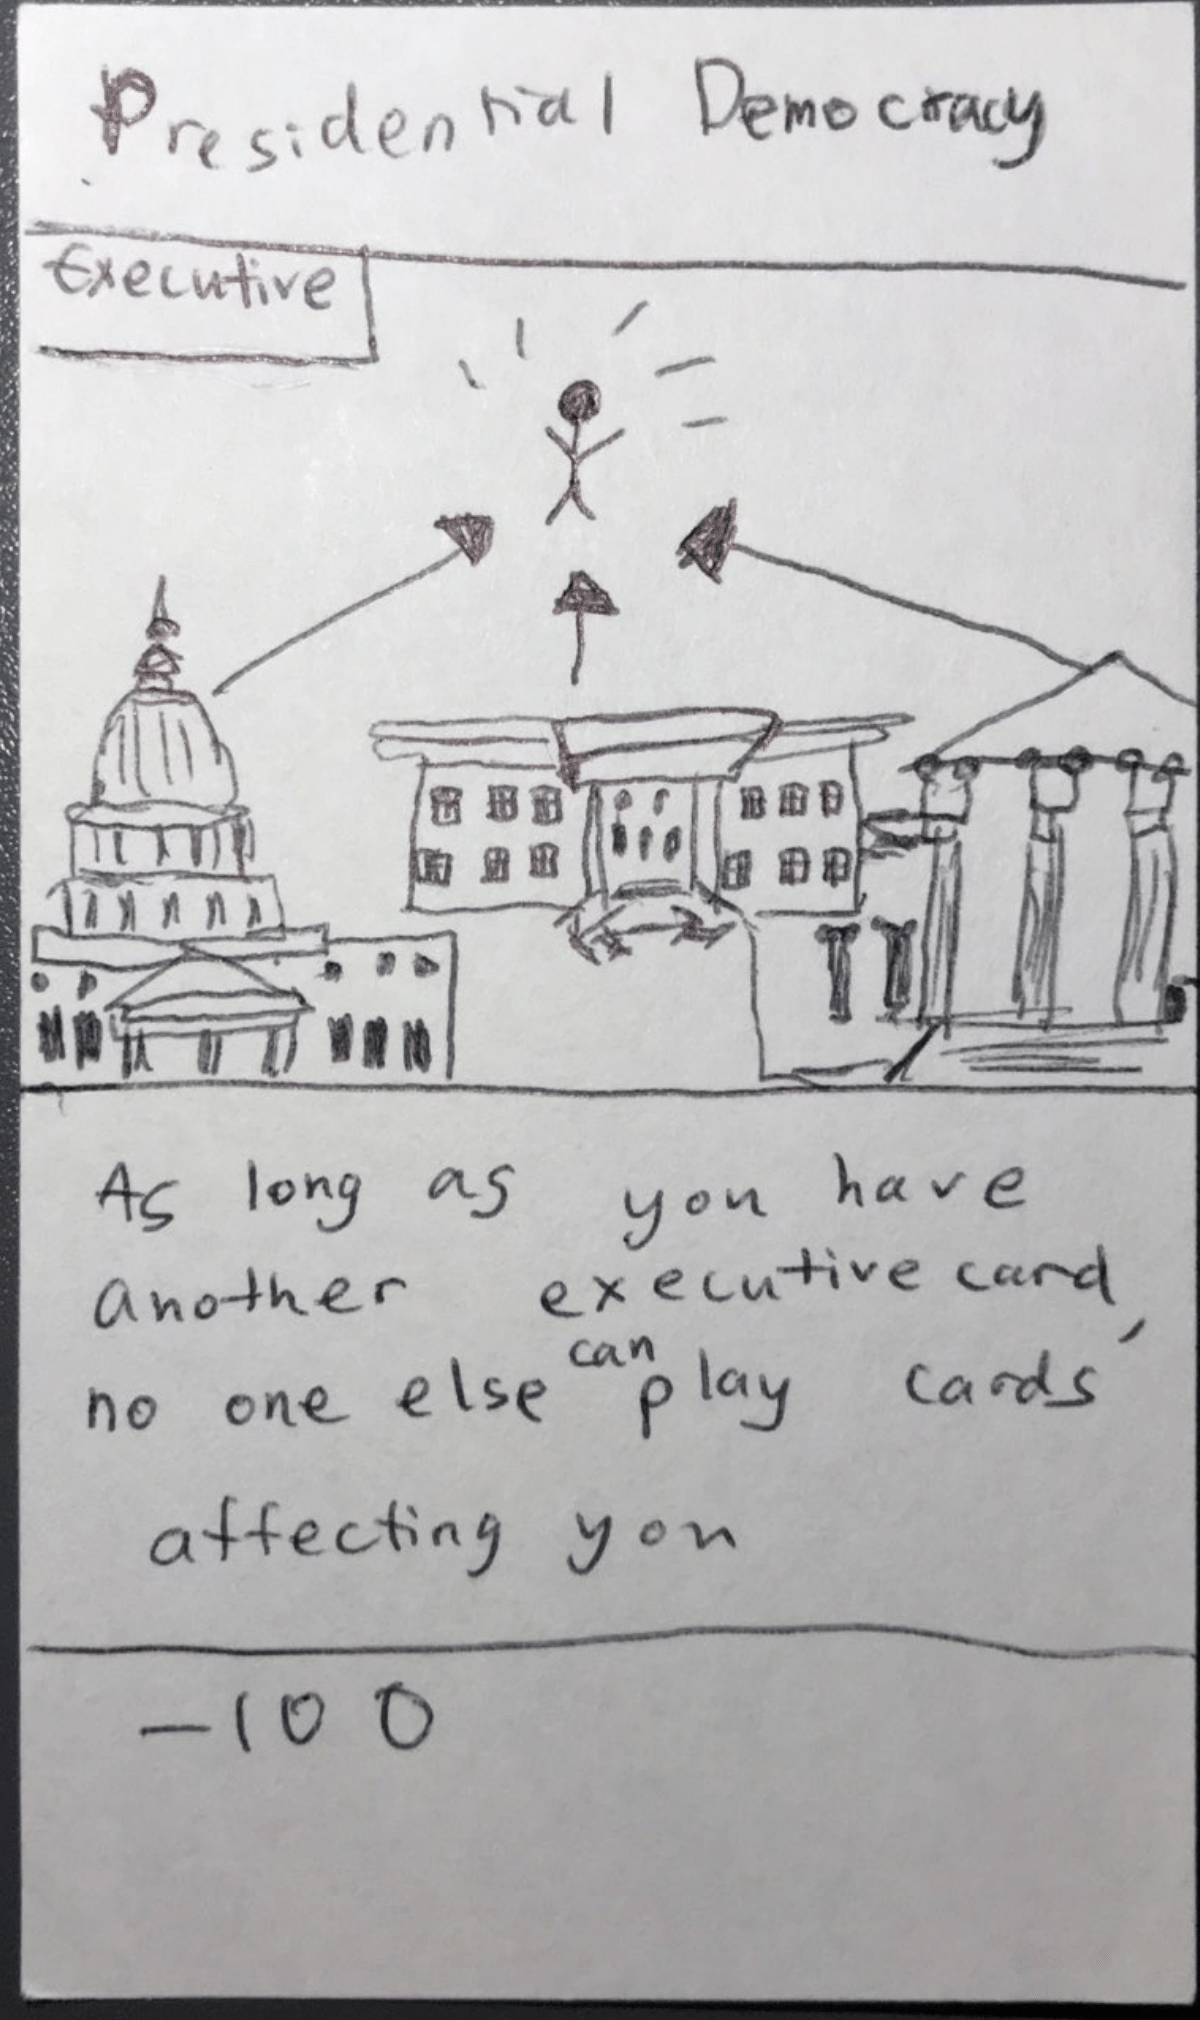 Presidential Democracy
Executive
As long as you have
another executive card,
no one else can play cards
affecting you
-100